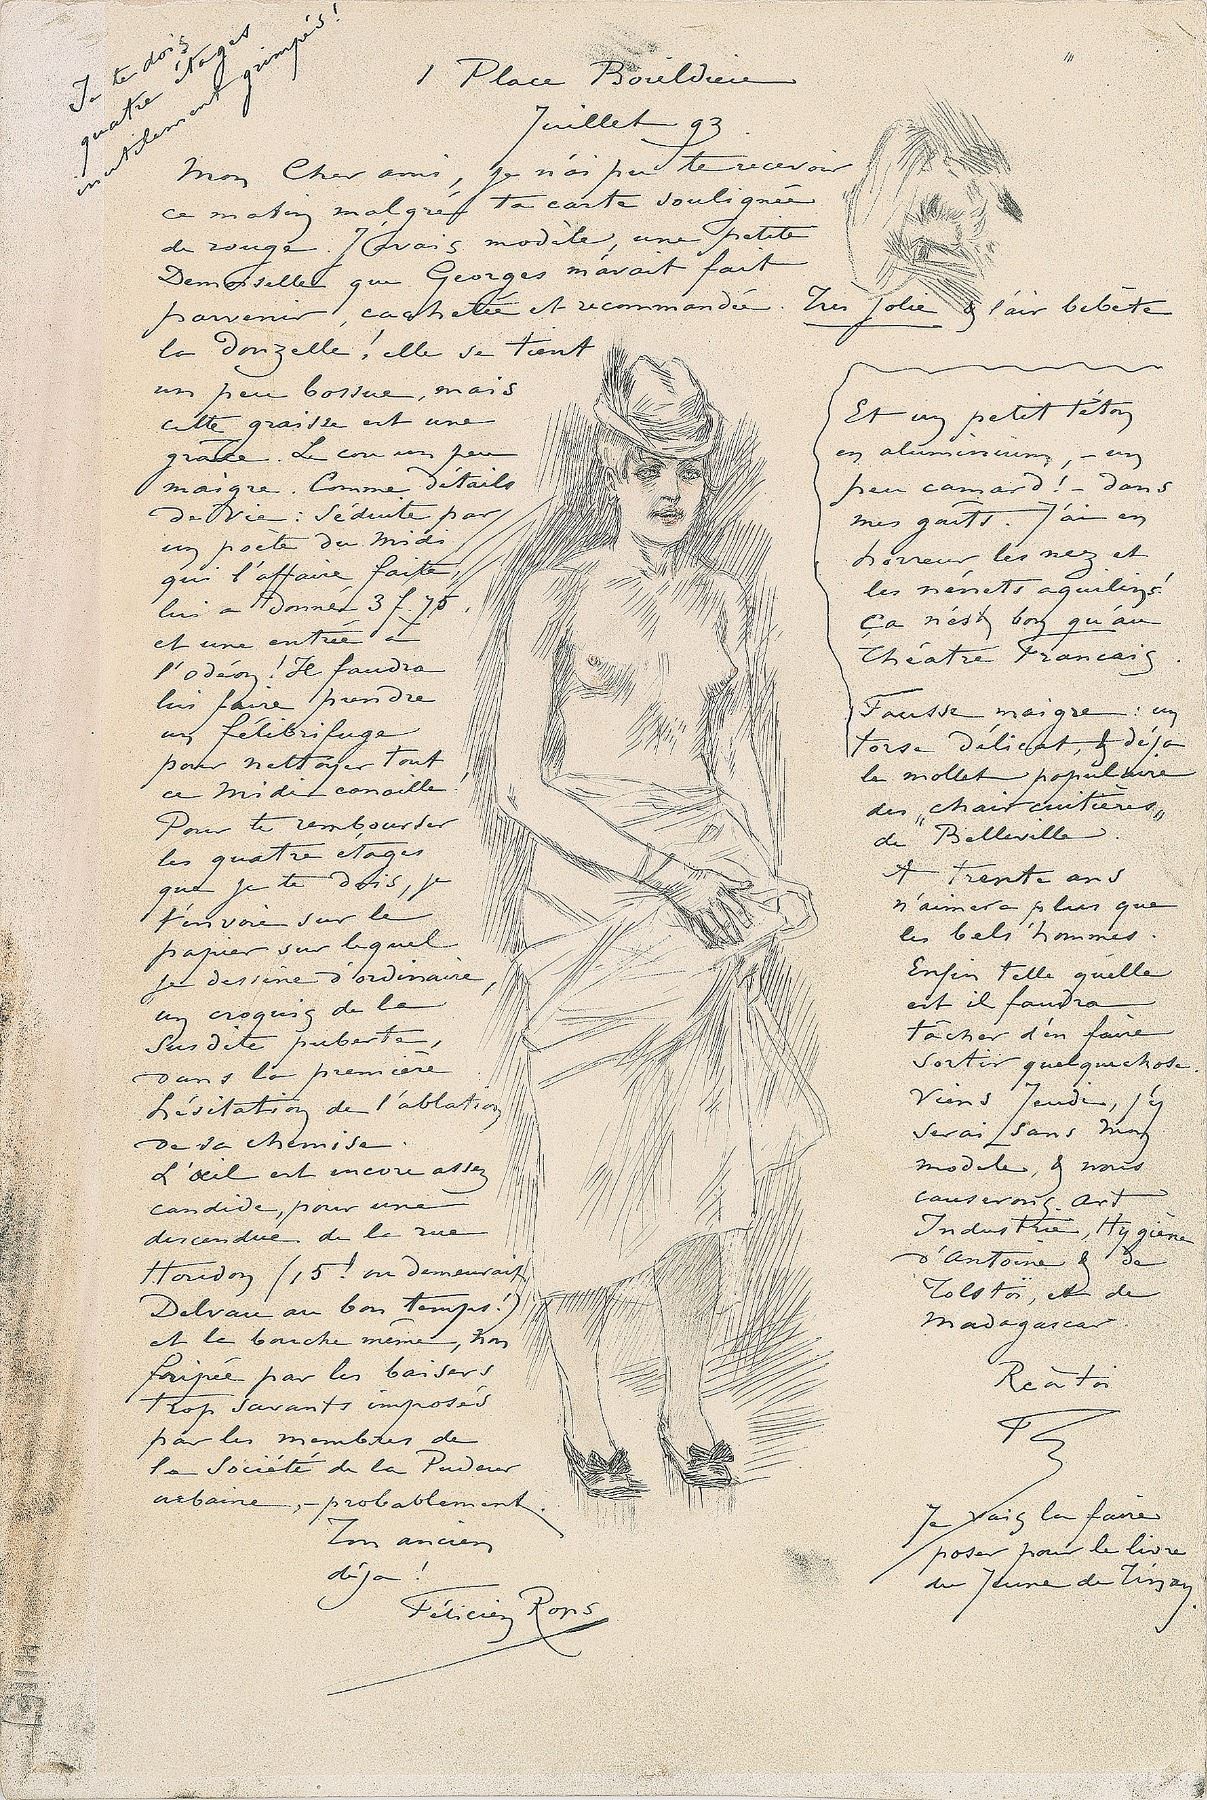 Je te dois
quatre étages
inutilement grimpés!
1 Place Boïeldieu
Juillet 93.
Mon Cher ami, je n'ai pu te recevoir
ce matin malgré ta carte soulignée
de rouge. J'avais modèle, une petite
Demoiselle que Georges m'avait fait
parvenir, cachetée et recommandée. Très jolie & l'air bébête
la Donzelle! elle se tient
un peu bossue, mais
cette graisse est une
grâce. Le cou un peu
maigre. Comme détails
de vie: séduite par
un poète du Midi
qui l'affaire faite,
lui a donné 3 f. 75,
et une entrée à
l'odéon! Il faudra
lui faire prendre
un félibrifuge
pour nettoyer tout
ce Midi canaille!
Pour te rembourser
les quatre étages
que je te dois, je
t'envoie sur le
papier sur lequel
je dessine d'ordinaire,
un croquis de la
susdite puberte,
dans la première
hésitation de l'ablation
de sa chemise.
L'œil est encore assez
candide, pour une
descendue de la rue
Houdon (15! ou demeurait
Delvau au bon temps!)
et la bouche même, non
fripée par les baisers
trop savants imposés
par les membres de
la Société de la Pudeur
urbaine, – probablement.
Ton ancien
déja!
Félicien Rops
Et un petit téton
en aluminium, – un
peu camard! – dans
mes goûts. J'ai en
horreur les nez et
les nénets aquilins!
Ça n'est bon qu'au
Théatre Francais.
Fausse maigre: un
torse délicat, & déja
le mollet populaire
des „chaircuitières„
de Belleville.
A trente ans
n'aimera plus que
les bels hommes.
Enfin telle quelle
est il faudra
tâcher d'en faire
sortir quelquechose.
Viens Jeudi, j'y
serai sans mon
modele, & nous
causerons art
Industrie, Hygiène
d'Antoine & de
Tolstoï, et de
Madagascar.
Re à toi
Je vais la faire
poser pour le livre
du Jeune de Tinan.